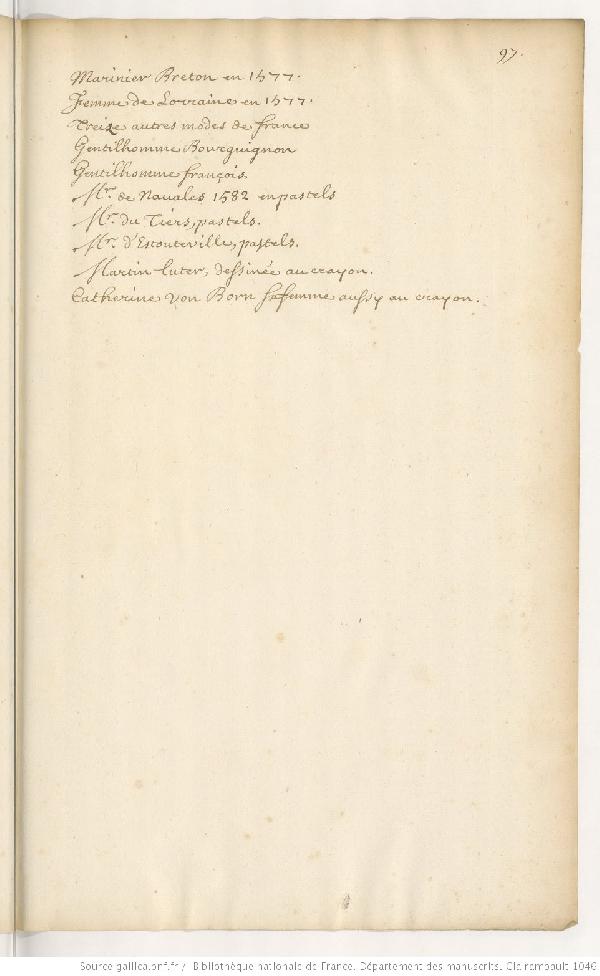 97.
Marinier Breton en 1577.
Femme de Lorraine en 1577.
Treize autres modes de france
Gentilhomme Bourguignon
Gentilhomme françois.
Mr. de Nauales 1582 en pastels
Mr. du Tiers, pastels.
Mr. d'Estouteville, pastels.
Martin luter, dessinée au crayon.
Catherine von Born sa femme aussy au crayon.
Source gallica.bnf.fr / Bibliothèque nationale de France. Département des manuscrits. Clairambault 1046